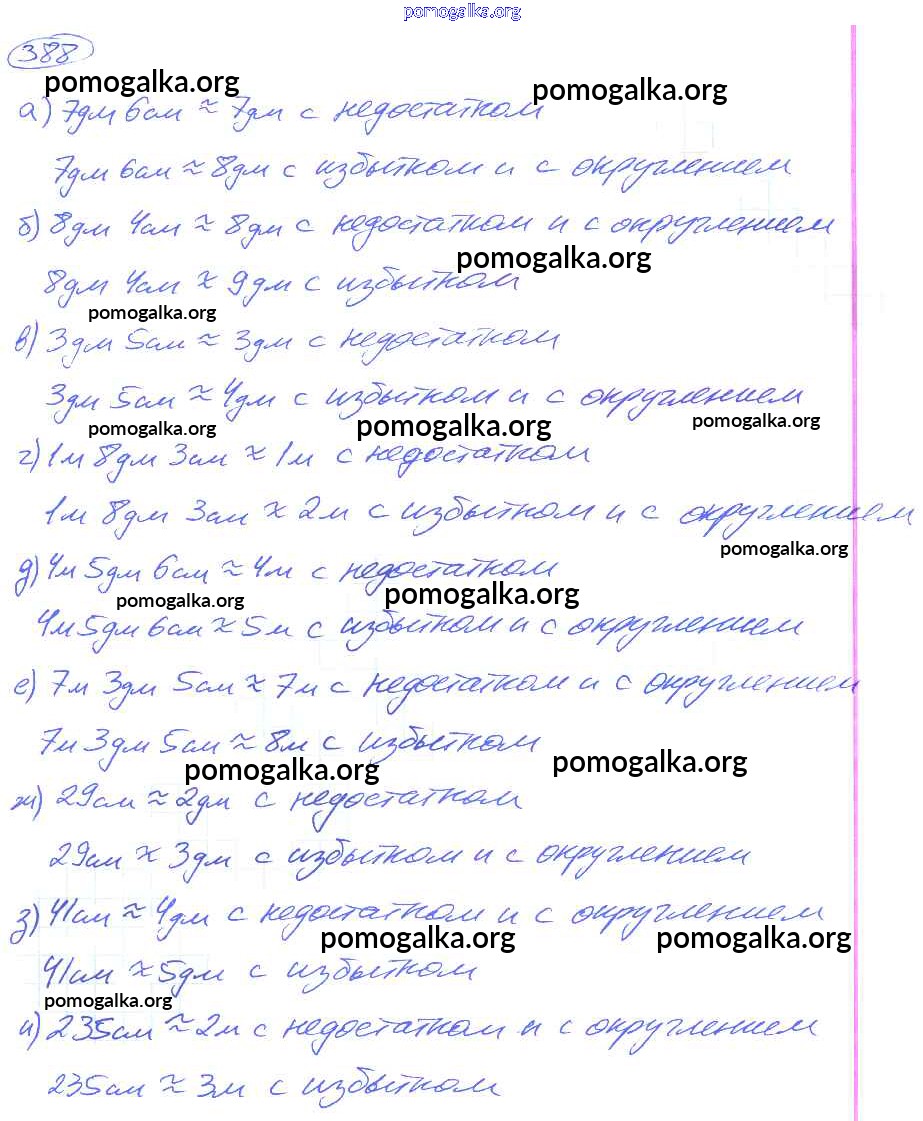 pomogalka.org
388
pomogalka.org
pomogalka.org
а) 7дм 6см ≈ 7дм с недостатком
7дм 6см ≈ 8дм с избытком и с округлением
б) 8дм 4см ≈ 8дм с недостатком и с округлением
pomogalka.org
8дм 4см ≈ 9дм с избытком
pomogalka.org
в) 3дм 5см ≈ 3дм с недостатком
3дм 5см ≈ 4дм с избытком и с округлением
pomogalka.org
pomogalka.org
pomogalka.org
г) 1м 8дм 3см ≈ 1м с недостатком
1м 8дм 3см ≈ 2м с избытком и с округлением
pomogalka.org
д) 4м 5дм 6см ≈ 4м с недостатком
pomogalka.org
pomogalka.org
4м 5дм 6см ≈ 5м с избытком и с округлением
е) 7м 3дм 5см ≈ 7м с недостатком и с округлением
7м 3дм 5см ≈ 8м с избытком
pomogalka.org
pomogalka.org
ж) 29см ≈ 2дм с недостатком
29см ≈ 3дм с избытком и с округлением
з) 41см ≈ 4дм с недостатком и с округлением
pomogalka.org
pomogalka.org
41см ≈ 5дм с избытком
pomogalka.org
и) 235см ≈ 2м с недостатком и с округлением
235см ≈ 3м с избытком